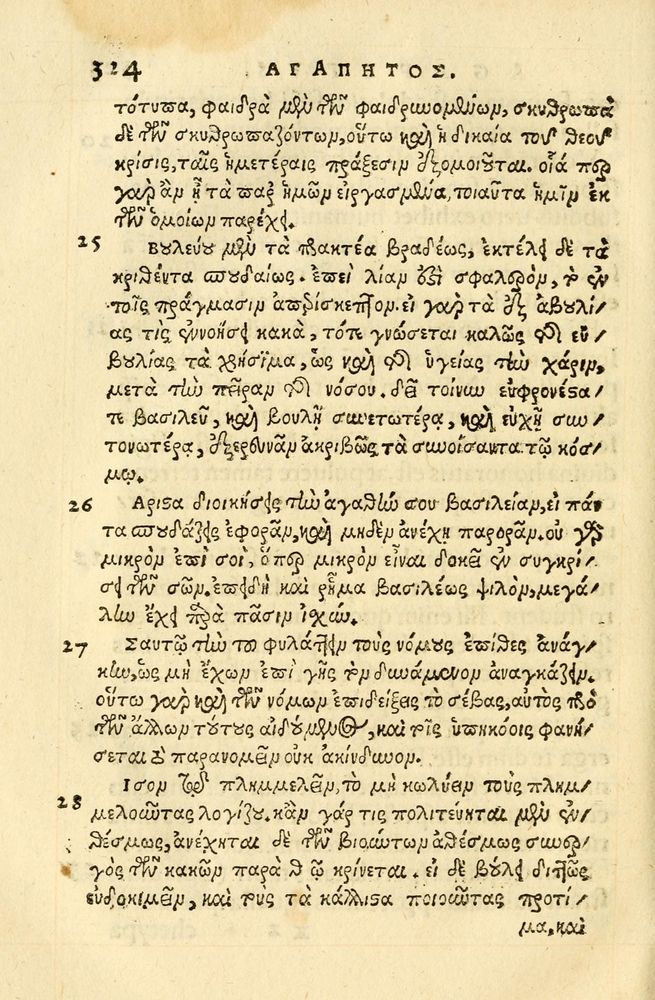 324 ΑΓΑΠΗΤΟΣ.
τότυπα, φαιδρὰ μὲν τῶν φαιδρυνομένων, σκυθρωπὰ
δὲ τῶν σκυθρωπαζόντων, οὕτω καὶ ἡ δικαία τοῦ θεοῦ
κρίσις, ταῖς ἡμετέραις πράξεσιν ἐξομοιοῦται. οἷά περ
γὰρ ἂν ᾖ τὰ παρ' ἡμῶν εἰργασμένα, τοιαῦτα ἡμῖν ἐκ
τῶν ὁμοίων παρέχει.
25 Βυλεύου μὲν τὰ πρακτέα βραδέως, ἐκτέλει δὲ τὰ
κριθέντα σπουδαίως. ἐπεὶ λίαν ἐστὶ σφαλερὸν, τὸ ἐν
τοῖς πράγμασιν ἀπερίσκεπτον. εἰ γὰρ τὰ ἐξ ἀβουλί-
ας τὶς ἐννοήσει κακὰ, τότε γνώσεται καλῶς τῆς εὐ-
βουλίας τὰ χρήσιμα, ὡς καὶ τῆς ὑγείας τὴν χάριν,
μετὰ τὴν πεῖραν τῆς νόσου. δεῖ τοίνυν ἐμφρονέστα-
τε βασιλεῦ, καὶ βουλῇ συνετωτέρᾳ, καὶ εὐχῇ συν-
τονωτέρᾳ, ἐξερευνᾶν ἀκριβῶς τὰ συνοίσαντα τῷ κόσ-
μῳ.
26 Αριστα διοικήσεις τὴν ἀγαθήν σου βασιλείαν, εἰ πάν-
τα σπουδάζεις ἐφορᾶν, καὶ μηδὲν ἀνέχῃ παρορᾶν. οὐ γὰρ
μικρὸν ἐπὶ σοὶ, ὅπερ μικρὸν εἶναι δοκεῖ ἐν συγκρί-
σει τῶν σῶν. ἐπειδὴ καὶ ῥῆμα βασιλέως ψιλὸν, μεγά-
λην ἔχει παρὰ πᾶσιν ἰχύν.
27 Σαυτῷ τὴν τοῦ φυλάττειν τοὺς νόμους ἐπίθες ἀνάγ-
κην, ὡς μὴ ἔχων ἐπὶ γῆς τὸν δυνάμενον ἀναγκάζειν.
οὕτω γὰρ καὶ τῶν νόμων ἐπιδείξεις τὸ σέβας, αὐτὸς πρὸ
τῶν ἄλλων τούτους αἰδούμενος, καὶ τοῖς ὑπηκόοις φανή-
σεται τὸ παρανομεῖν οὐκ ἀκίνδυνον.
28 Ισον τῷ πλημμελεῖν, τὸ μὴ κωλύειν τοὺς πλημ-
μελοῦντας λογίζου. κἂν γάρ τις πολιτεύηται μὲν ἐν-
θέσμως, ἀνέχηται δὲ τῶν βιούντων ἀθέσμως συνερ-
γὸς τῶν κακῶν παρὰ θεῷ κρίνεται. εἰ δὲ βούλει διττῶς
εὐδοκιμεῖν, καὶ τοὺς τὰ κάλλιστα ποιοῦντας προτί-
μα, καὶ